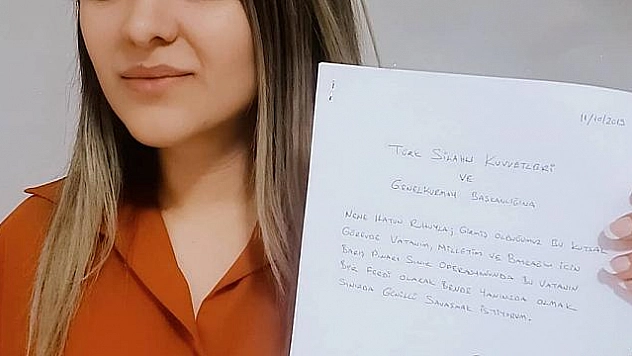 11/10/2019
TÜRK SİLAHLI KUVVETLERİ
VE
GENELKURMAY BAŞKANLIĞINA
NENE HATUN RUHUYLA; GİRMİŞ OLDUĞUMUZ BU KUTSAL
GÖREVDE VATANIM, MİLLETİM VE BAYRAĞIM İÇİN
BARIŞ PINARI SINIR OPERASYONUNDA BU VATANIN
BİR FERDİ OLARAK BENDE YANINIZDA OLMAK
SINIRDA GÖNÜLLÜ SAVAŞMAK İSTİYORUM.